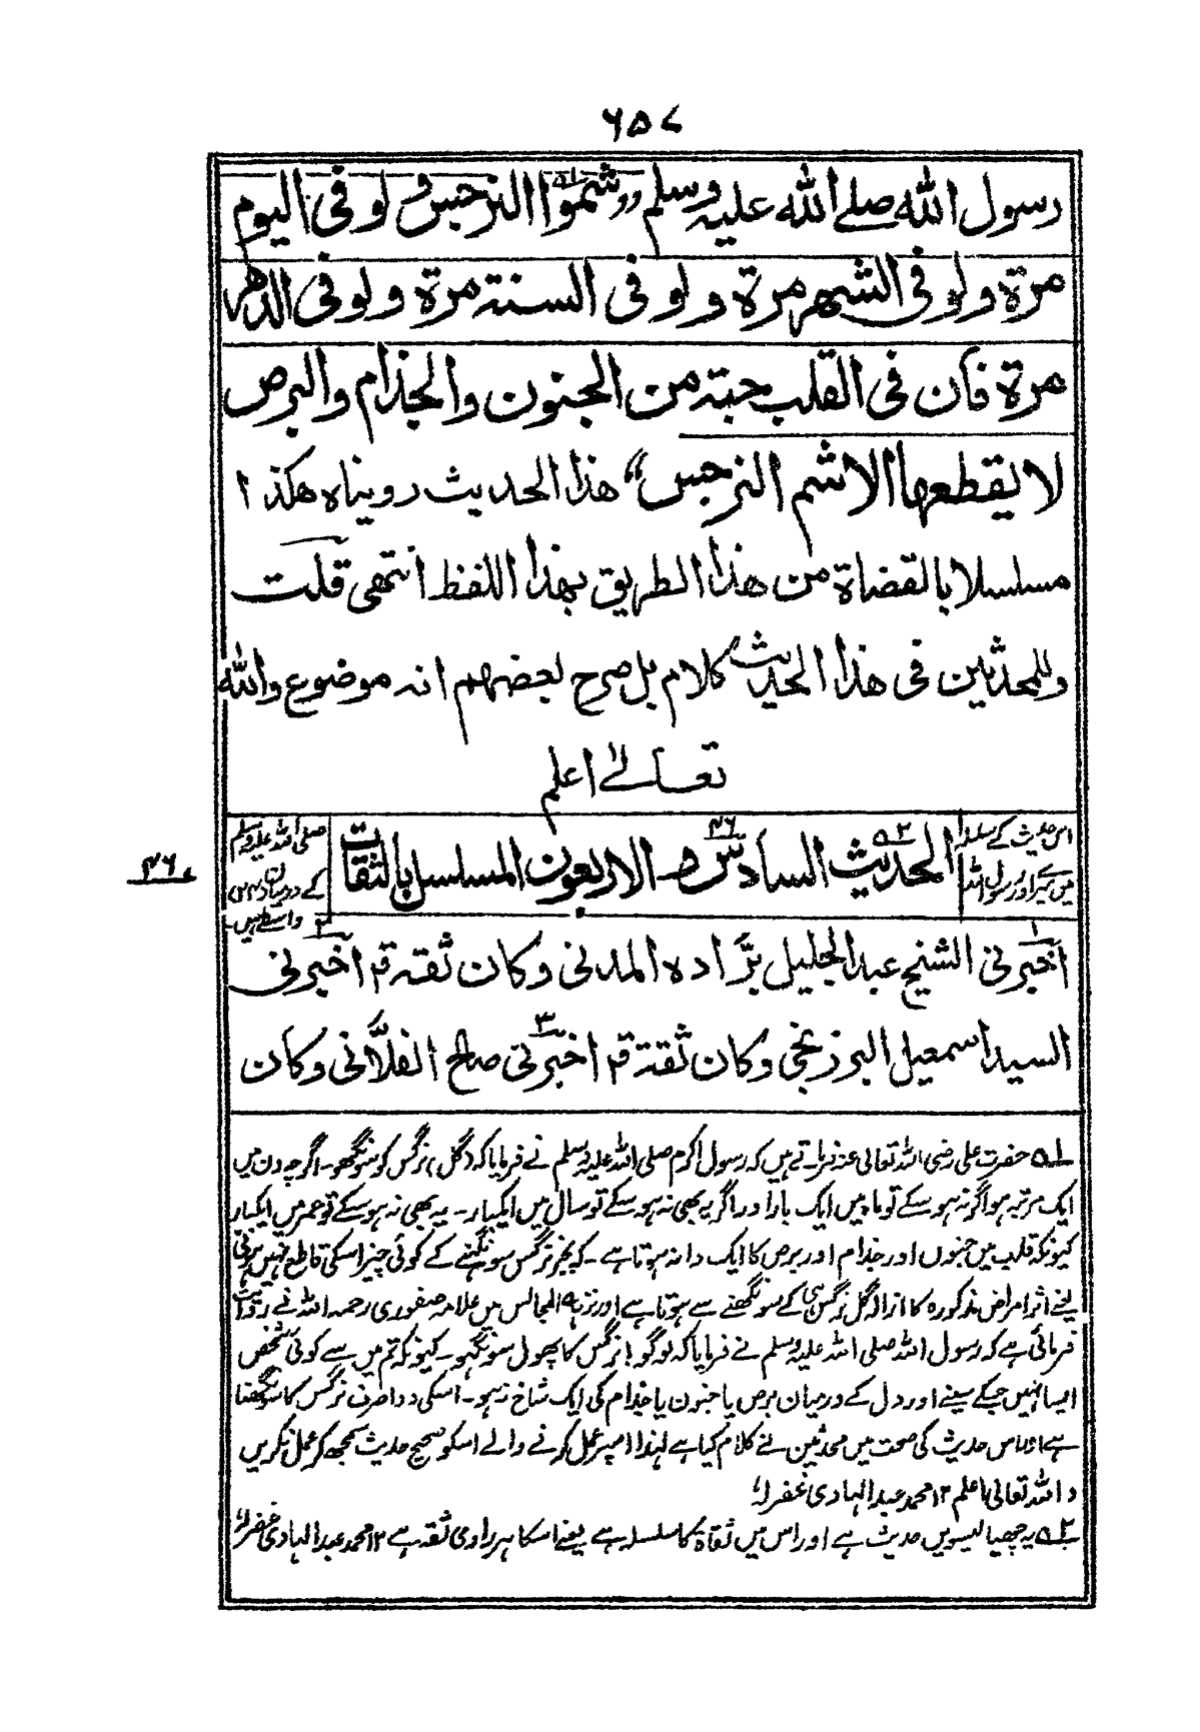 ۶۵۷
رسول الله صلے الله علیہ وسلم ”شموا النرجس ولو فی الیوم
مرة ولو فی الشهر مرة ولو فی السنتہ مرة ولو فی الدهر
مرة فان فی القلب حبتہ من الجنون والجذام والبرص
لا یقطعها الا شم النرجس“ هذا الحدیث رویناه هکذا
مسلسلا بالقضاة من هذا الطریق بهذا اللفظ انتهی قلت
وللمحدثین فی هذا الحدیث کلام بل صرح بعضهم انہ موضوع والله
تعالےٰ اعلم
اس حدیث کے سلسلہ
میں میرے اور رسول اللہ
الحدیث السادس والاربعون المسلسل بالثقات
۴۶
صلی اللہ علیہ وسلم
کے درمیان (۲۴)
واسطے ہیں
۴۶
اخبرنی الشیخ عبدالجلیل برّاده المدنی وکان ثقتہ قال اخبرنی
السید اسمعیل البرزنجی وکان ثقتہ قال اخبرنی صالح الفلّانی وکان
۱ حضرت علی رضی اللہ تعالی عنہ فرماتے ہیں کہ رسول اکرم صلی اللہ علیہ وسلم نے فرمایا کہ (گل) نرگس کو سونگھو۔ اگرچہ دن میں
ایک مرتبہ ہو اگر نہ ہو سکے تو ماہ میں ایک بار اور اگر یہ بھی نہ ہو سکے تو سال میں ایکبار۔ یہ بھی نہ ہو سکے تو عمر میں ایکبار
کیونکہ قلب میں جنوں اور جذام اور برص کا ایک دانہ ہوتا ہے۔ کہ بجز نرگس سونگھنے کے کوئی چیز اسکی قاطع نہیں ہوتی
یعنے اثر امراض مذکورہ کا ازالہ گل نرگس ہی کے سونگھنے سے ہوتا ہے اور نزہۃ المجالس میں علامہ صفوری رحمہ اللہ نے روایت
فرمائی ہے کہ رسول اللہ صلی اللہ علیہ وسلم نے فرمایا کہ لوگو! نرگس کا پھول سونگھو۔ کیونکہ تم میں سے کوئی شخص
ایسا نہیں جسکے سینے اور دل کے درمیان برص یا جنون یا جذام کی ایک شاخ نہو۔ اسکی دوا صرف نرگس کا سونگھنا
ہے اور اس حدیث کی صحت میں محدثین نے کلام کیا ہے لہٰذا اسپر عمل کرنے والے اسکو صحیح حدیث سمجھ کر عمل نکریں
واللہ تعالی اعلم ۱۲ محمد عبدالہادی غفرلہٗ
۲ یہ چھیالیسویں حدیث ہے اور اس میں ثقاۃ کا سلسلہ ہے یعنے اسکا ہر راوی ثقہ ہے ۱۲ محمد عبدالہادی غفرلہٗ